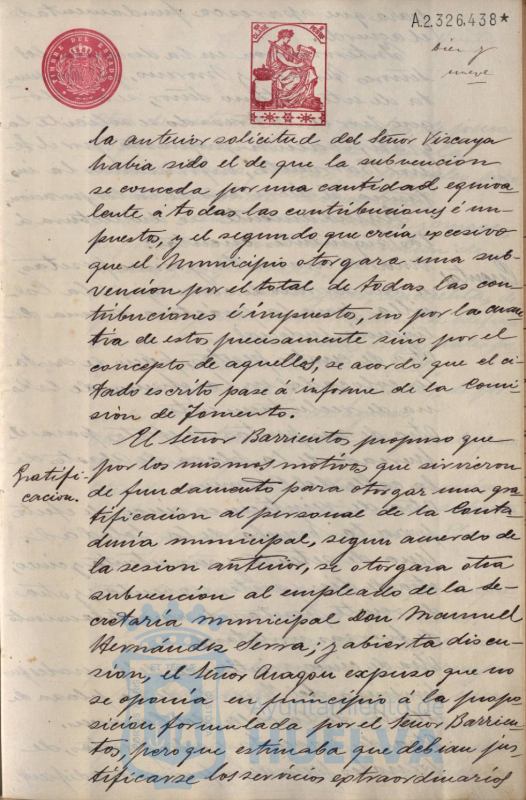 A.2.326,438*
Diez y
nueve
TIMBRE DEL ESTADO
la anterior solicitud del Señor Vizcaya
habia sido el de que la subvencion
se conceda por una cantidad equiva
lente á todas las contribuciones é im
puesto, y el segundo que creía excesivo
que el Municipio otorgara una sub-
vencion por el total de todas las con
tribuciones é impuesto, no por la cuan
tia de estos precisamente sino por el
concepto de aquellos, se acordó que el ci
tado escrito pase á informe de la Comi
sion de Fomento.
El Señor Barrientos propuso que
Gratifi-
cacion.
por los mismos motivos que sirvieron
de fundamento para otorgar una gra
tificacion al personal de la Conta
duria municipal, segun acuerdo de
la sesion anterior, se otorgara otra
subvencion al empleado de la Se-
cretaría municipal Don Manuel
Hernández Serra; y abierta discu-
sion, el Señor Aragon expuso que no
se oponía en principio á la propo
sicion formulada por el Señor Barrien
tos, pero que estimaba que debian jus
tificarse los servicios extraordinarios
Ayuntamiento de
HUELVA